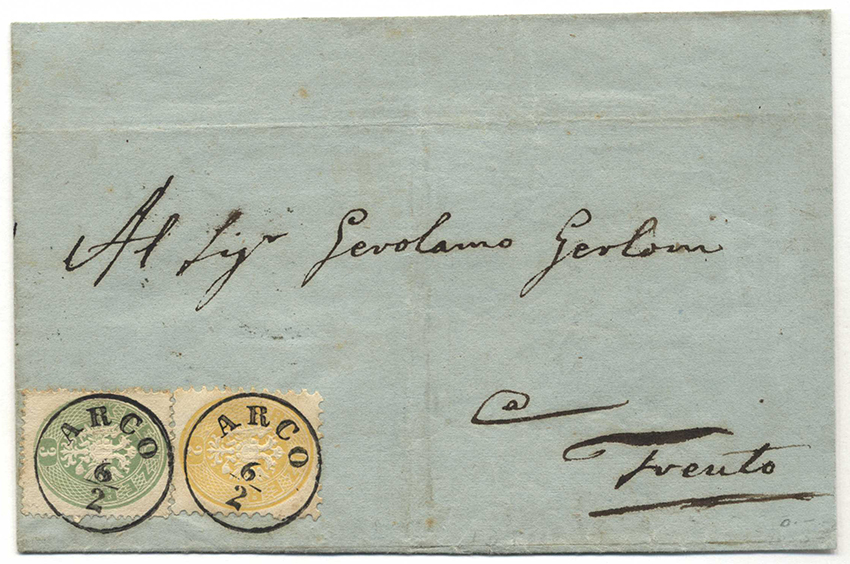 Al Sigr Gerolamo Gerloni
a
Trento
ARCO
6/2
3
ARCO
6/2
2